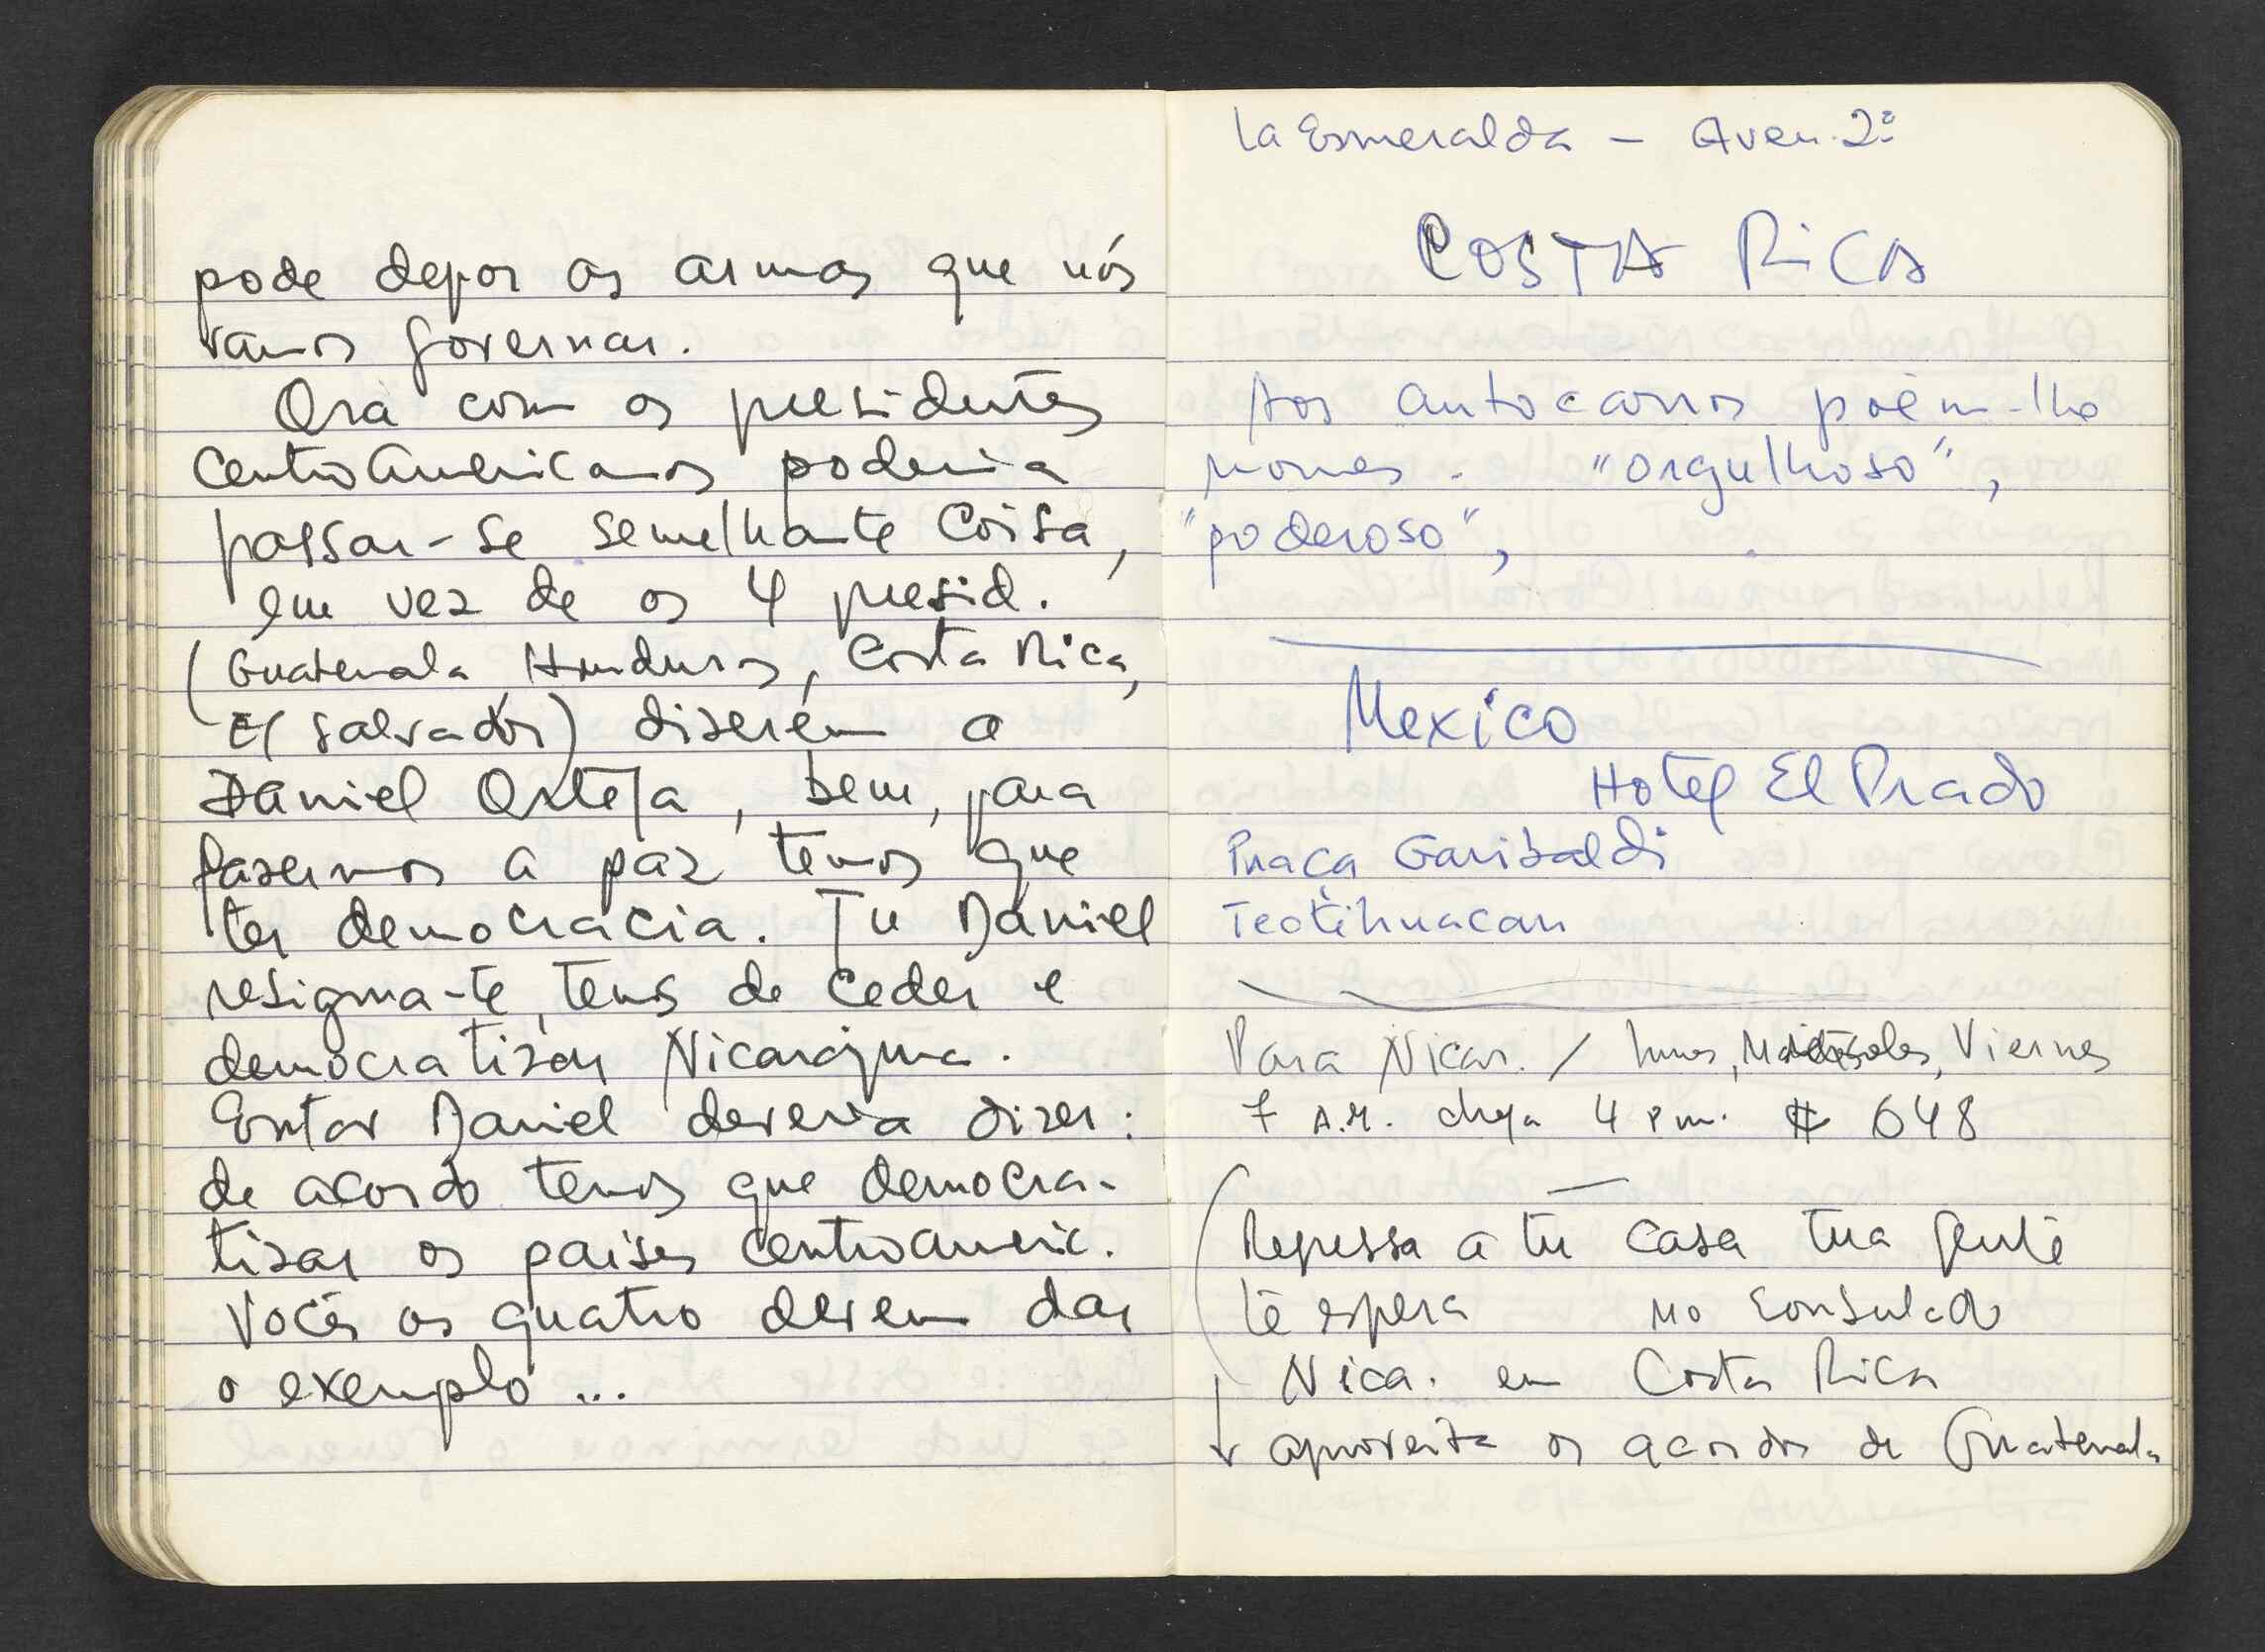 pode depor as armas que nós
vamos governar.
Ora com os presidentes
CentroAmericanos poderia
passar-se semelhante coisa,
em vez de os 4 presid.
(Guatemala Honduras, Costa Rica,
El Salvador) dizerem a
Daniel Ortega, bem, para
fazermos a paz temos que
ter democracia. Tu Daniel
resigna-te, tens de ceder e
democratizar Nicarágua.
Entao Daniel deveria dizer:
de acordo temos que democra-
tizar os paises centroameric.
Vocês os quatro devem dar
o exemplo...
La Esmeralda - Aven. 2ª
COSTA RiCA
Aos autocarros põem-lhe
nomes. "orgulhoso",
"poderoso",
Mexico
Hotel El Prado
Praça Garibaldi
Teotihuacan
Para Nicar. / lunes, Viernes
7 A.M. chega 4 pm. # 648
Regressa a tu casa tua gente
te espera no consulado
Nica. em Costa Rica
aproveita os acordos de Guatemala